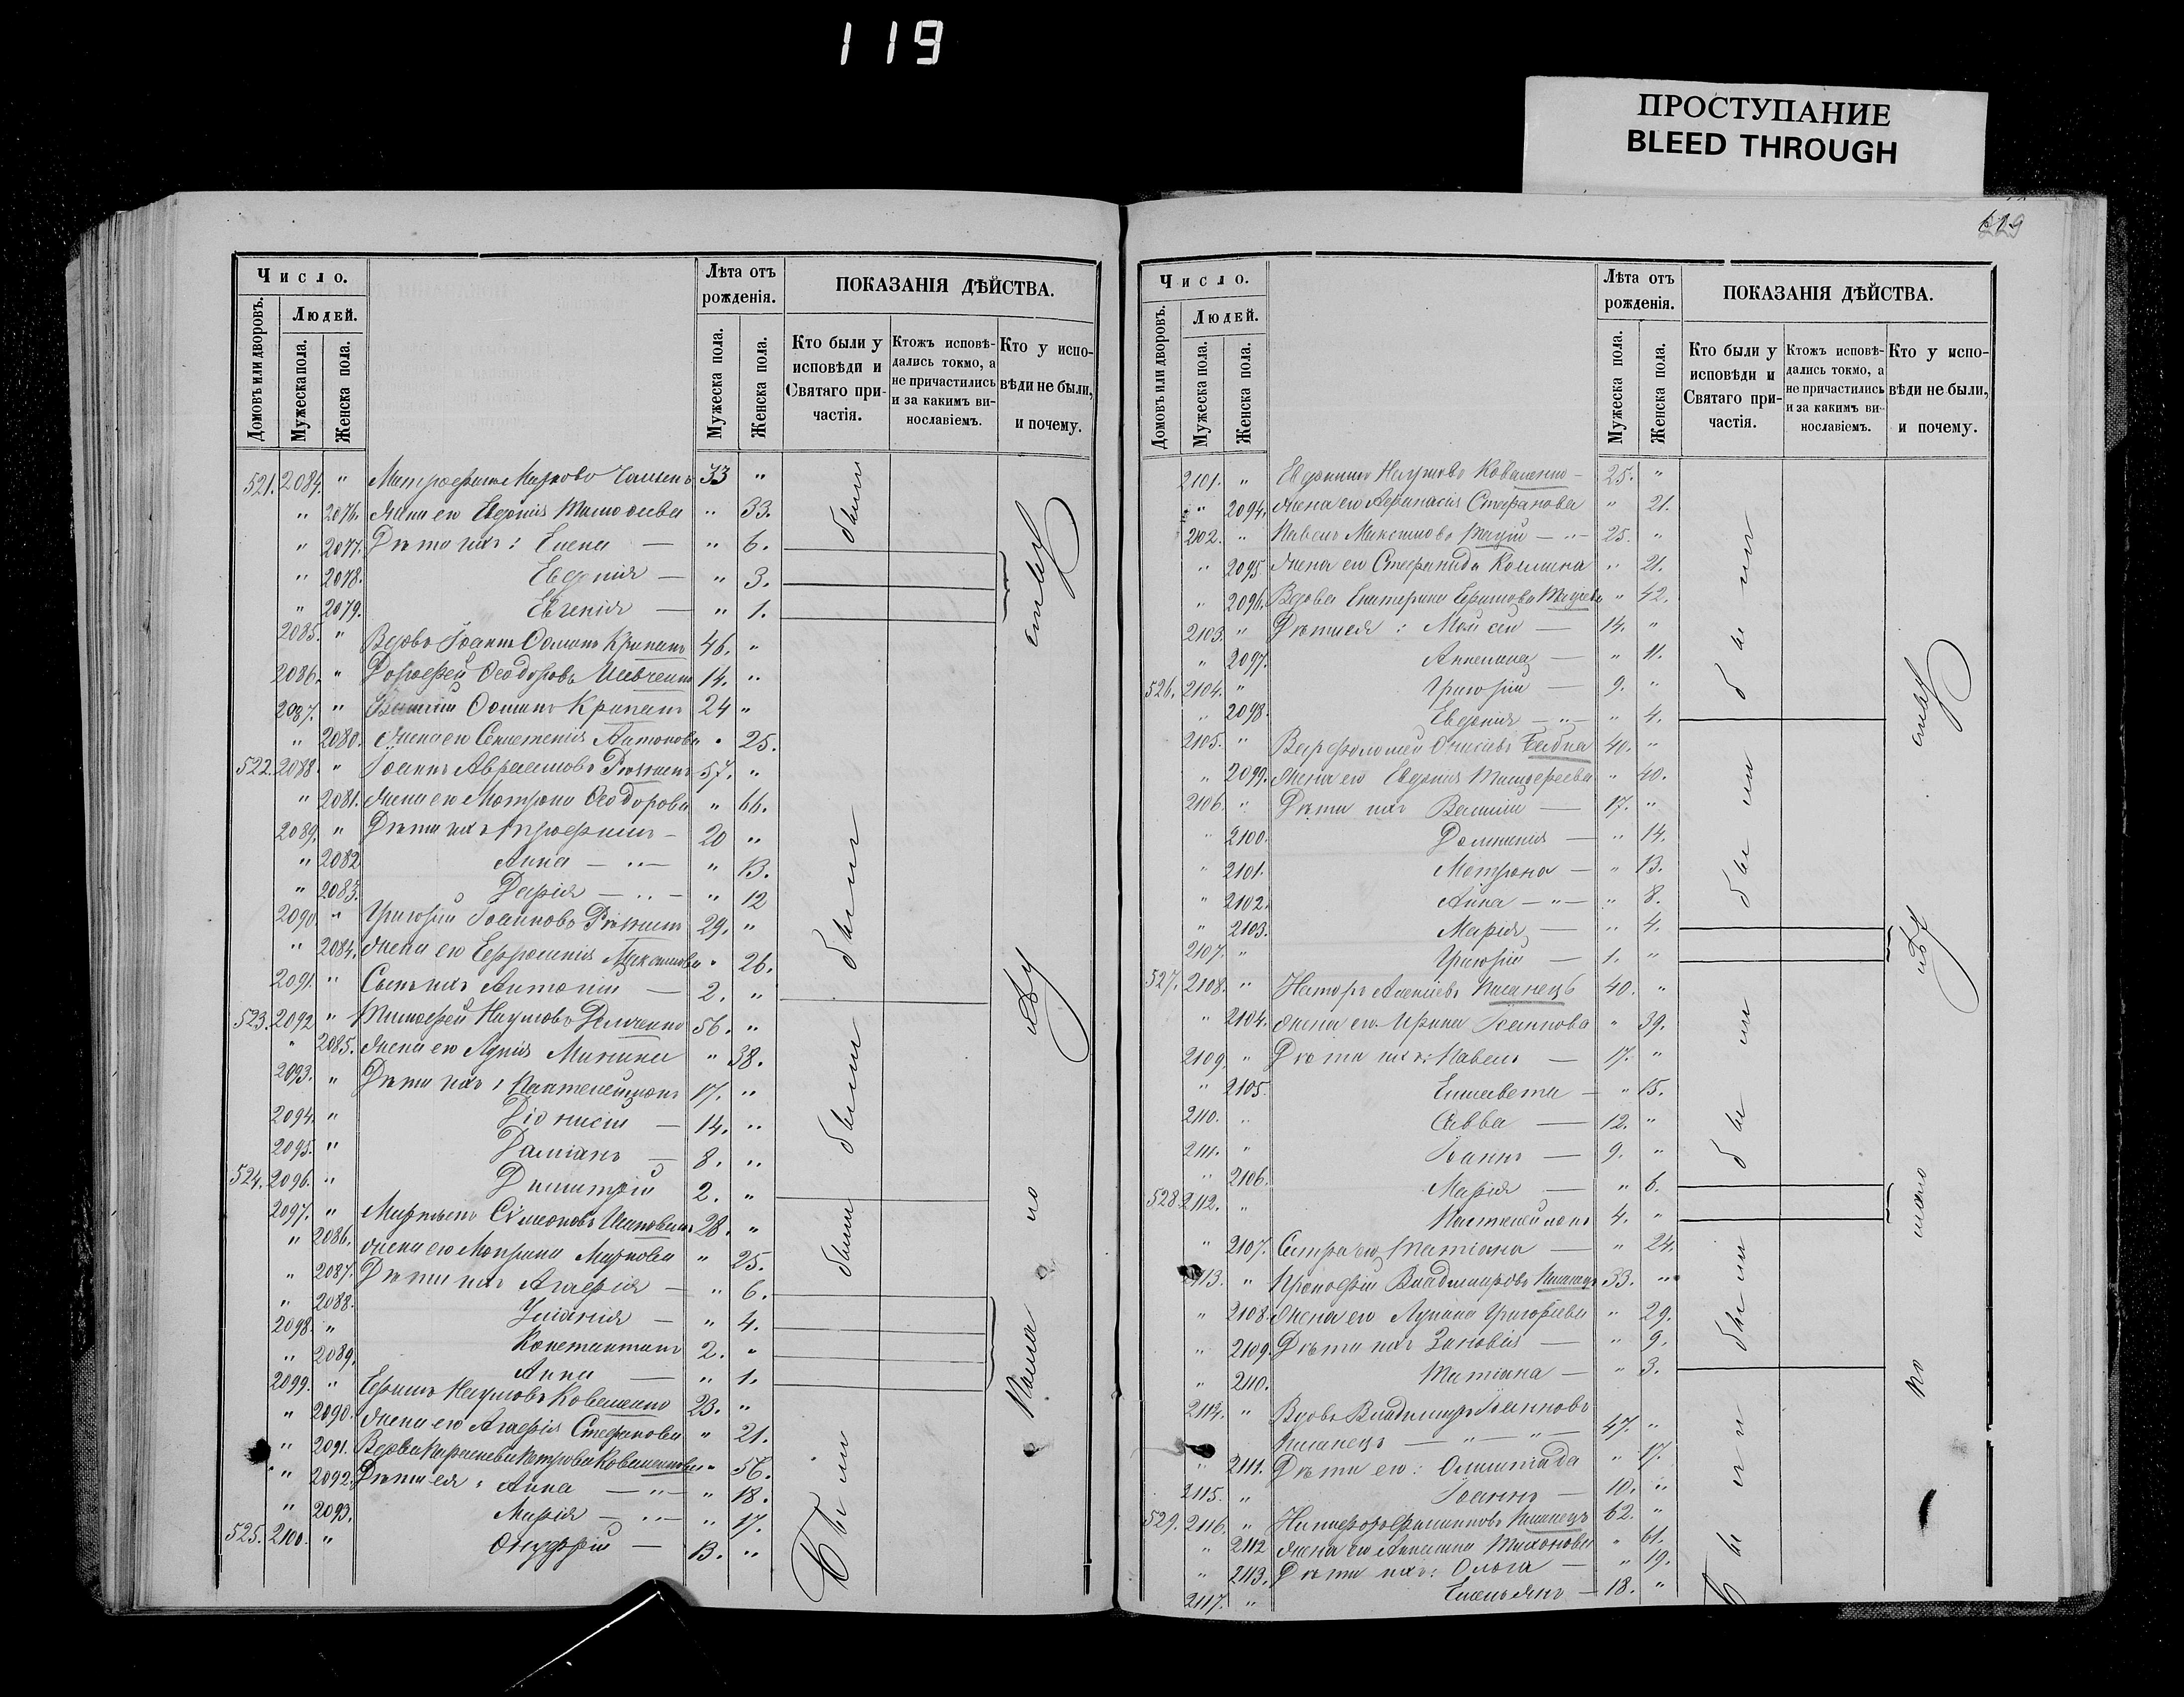 119
ПРОСТУПАНИЕ
BLEED THROUGH
Число.
Людей.
Домовъ или дворовъ.
Мужеска пола.
Женска пола.
Лѣта отъ рожденія.
Мужеска пола.
Женска пола.
ПОКАЗАНІЯ ДѢЙСТВА.
Кто были у исповѣди и Святаго причастія.
Ктожъ исповѣдались токмо, а не причастились и за какимъ винославіемъ.
Кто у исповѣди не были, и почему.
521. 2084. " Митрофанъ Марковъ 33 "
" 2076. Жена его Евдокія " 33.
" 2077. Дѣти ихъ: Елена — " 6.
" 2078. Евдокія — " 3.
" 2079. Евгенія — " 1.
2085. " Вдовъ Іоаннъ Ѳоминъ Крипакъ 46. "
2086. " Дороѳей Ѳеодоровъ Шевченко 14. "
2087. " Ѳоминъ Крипакъ 24 "
" 2080. Жена его Антонова " 25.
522. 2088. " Іоаннъ Авраамовъ 57. "
" 2081. Жена его Мотрона Ѳеодорова " 66.
2089. " Дѣти ихъ Трофимъ — 20 "
" 2082. Анна — " — " 13.
" 2083. Дарія — " — " 12
2090. " Григорій Іоанновъ 29. "
" 2084. Жена его Евфросинія Максимова " 26.
2091. " Сынъ ихъ Антоній — 2. "
523. 2092 " Тимоѳей Наумовъ 56. "
" 2085. Жена его Агнія Микина " 38.
2093. " Дѣти ихъ: Пантелеимонъ 17. "
2094. " Діонисій — 14. "
2095. " Даміанъ — 8. "
524. 2096. " Димитрій 2. "
2097. " Сѵмеоновъ 28. "
" 2086. Жена его Маркова " 25.
" 2087. Дѣти ихъ Агафія — " 6.
" 2088. Уліанія — " 4.
2098. " Константинъ 2. "
" 2089. Анна — " 1.
2099. " Ефимъ Наумовъ Коваленко 23. "
" 2090. Жена его Агафія Стефанова " 21.
" 2091. Вдова Параскева Петрова Коваленкова " 56.
" 2092. Дѣти ея: Анна — " — " 18.
" 2093. Марія — " — " 17.
525. 2100. " Онуфрій — 13. "
были
были
были
были
Были
По малолѣтству
Число.
Людей.
Домовъ или дворовъ.
Мужеска пола.
Женска пола.
Лѣта отъ рожденія.
Мужеска пола.
Женска пола.
ПОКАЗАНІЯ ДѢЙСТВА.
Кто были у исповѣди и Святаго причастія.
Ктожъ исповѣдались токмо, а не причастились и за какимъ винославіемъ.
Кто у исповѣди не были, и почему.
2101. " Евдокимъ Наумовъ Коваленко — 25. "
" 2094. Жена его Афанасія Стефанова " 21.
2102. " Павелъ Максимовъ — " — 25. "
" 2095. Жена его Стефанида " 21.
" 2096. Вдова Екатерина " 42.
2103. " Дѣти ея: Моисей — 14. "
" 2097. Ангелина — " 11.
526. 2104. " Григорій — 9. "
" 2098. Евдокія — " — " 4.
2105. " Варфоломей 40. "
" 2099. Жена его Евдокія Тимоѳеева " 40.
2106. " Дѣти ихъ Василій — 17. "
" 2100. Домникія — " 14.
" 2101. Мотрона — " 13.
" 2102. Анна — " — " 8.
" 2103. Марія — " 4.
2107. " Григорій — 1. "
527. 2108. " Несторъ Алексіевъ Писанецъ 40. "
" 2104. Жена его Ирина Іоаннова " 39.
2109. " Дѣти ихъ: Павелъ — 17. "
" 2105. Елисавета — " 15.
2110. " Савва — 12. "
2111. " Іоаннъ — 9. "
" 2106. Марія — " 6.
528 2112. " Пантелеимонъ 4. "
" 2107. Сестра его Татіана — " 24.
2113. " Прокофій Владимировъ Писанецъ 33. "
" 2108. Жена его Лукина Григоріева " 29.
" 2109. Дѣти ихъ Зиновія — " 9.
" 2110. Татіана — " 3.
2114. " Вдовъ Владимиръ Іоанновъ
Писанецъ — " — " — 47. "
" 2111. Дѣти его: Олимпіада " 17.
2115. " Іоаннъ — 10. "
529. 2116. " Никифоръ Писанецъ 62. "
" 2112 Жена его Ангелина Тихонова " 61.
" 2113. Дѣти ихъ: Ольга — " 19.
2117. " Емельянъ — 18. "
были
были
были
были
были
по малолѣтству